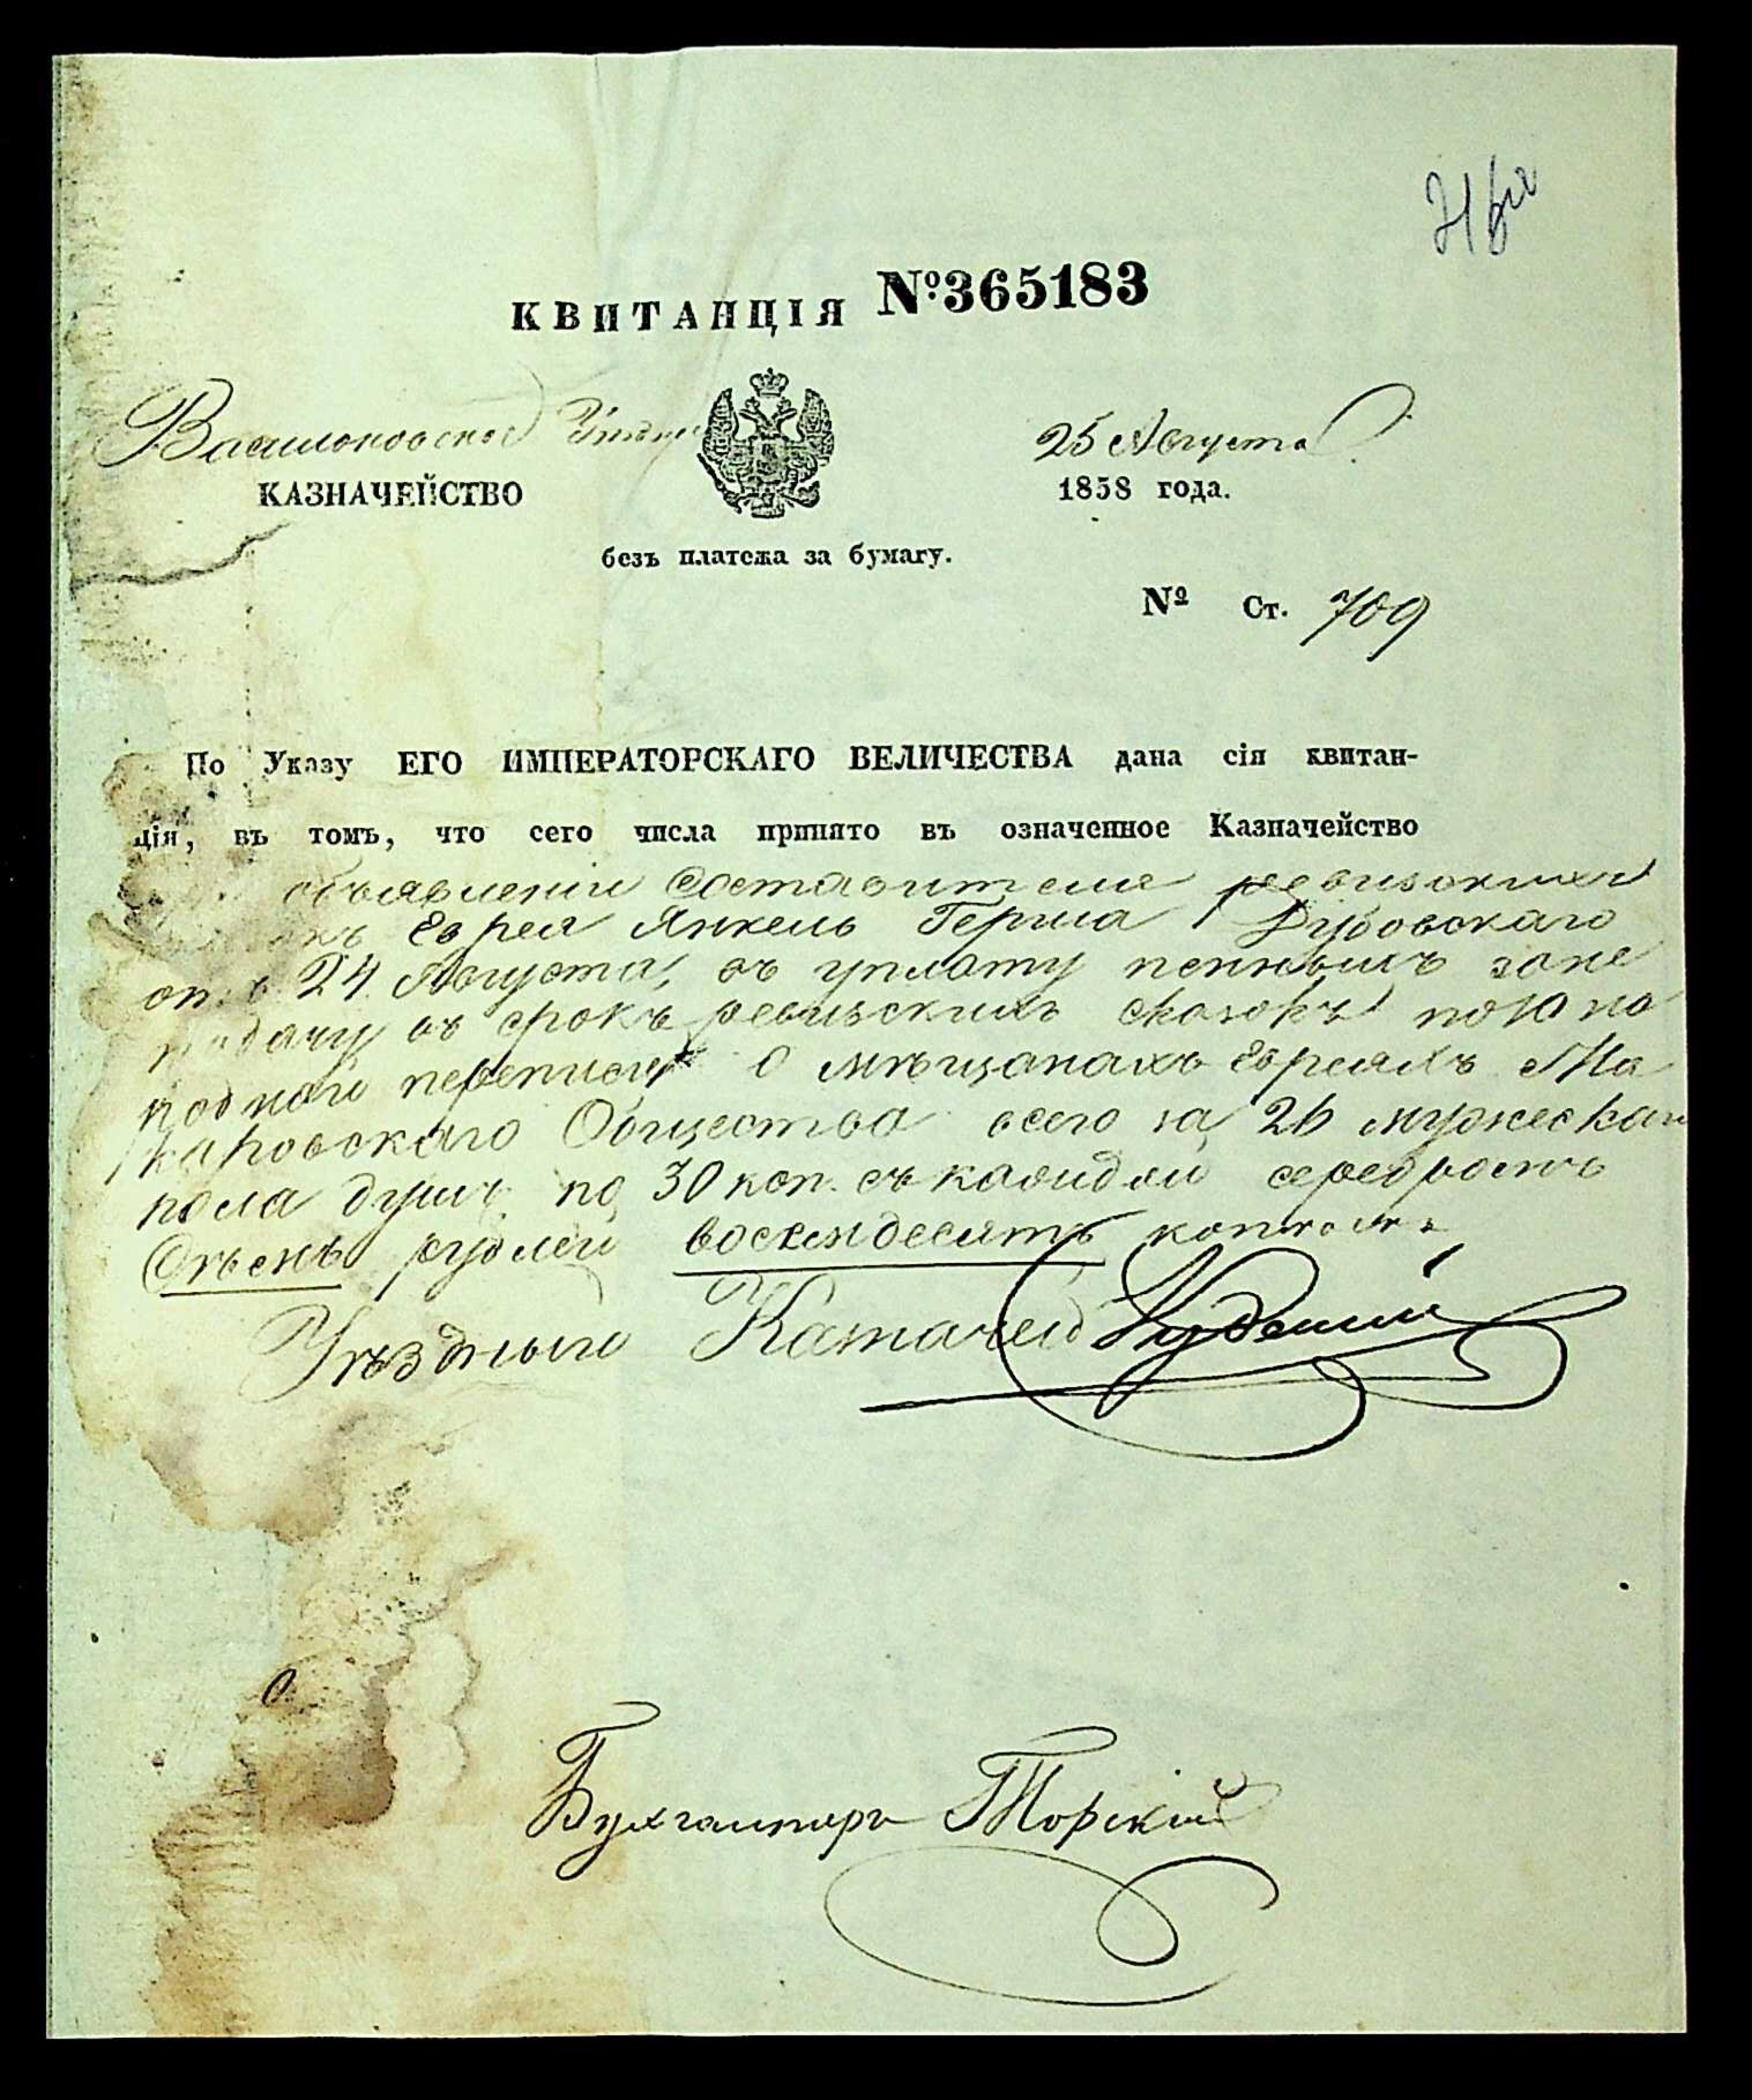 КВИТАНЦІЯ №365183
Васильковское Уѣздн
25 Августа
КАЗНАЧЕЙСТВО
1858 года.
безъ платежа за бумагу.
№ Ст. 709
По Указу ЕГО ИМПЕРАТОРСКАГО ВЕЛИЧЕСТВА дана сія квитан-
ція, въ томъ, что сего числа принято въ означенное Казначейство
объявленіи Составителя ревизскихъ
Еврея Янкель Герша Дубовскаго
отъ 24 Августа, въ уплату пенныхъ зане
подачу въ срокъ ревизскихъ сказокъ по 10 на
родной переписи о мѣщанахъ Евреяхъ Ма
каровскаго Общества всего за 26 мужескаго
пола душъ по 30 коп. съ каждой серебромъ
Семь рублей восемьдесятъ копѣекъ
Уѣздный Казначей
Бухгалтеръ Торскій